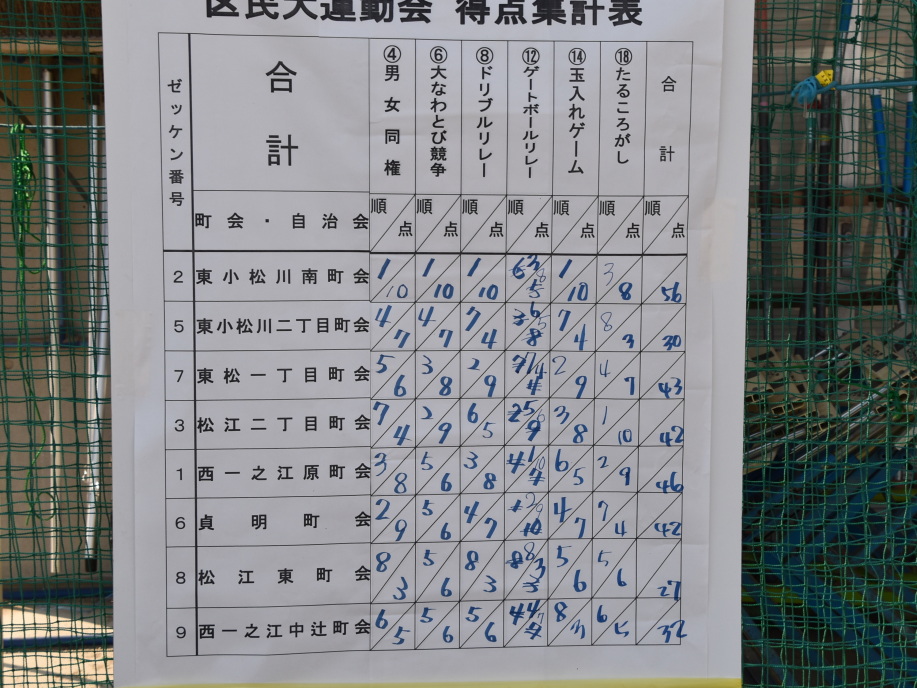 区民大運動会 得点集計表
ゼッケン番号 合計 ④男女同権 ⑥大なわとび競争 ⑧ドリブルリレー ⑫ゲートボールリレー ⑭玉入れゲーム ⑱たるころがし 合計
町会・自治会 順 点 順 点 順 点 順 点 順 点 順 点 順 点
2 東小松川南町会 1 10 1 10 1 10 3 8 1 10 3 8 56
5 東小松川二丁目町会 4 7 4 7 7 4 6 5 7 4 8 3 30
7 東松一丁目町会 5 6 3 8 2 9 7 4 2 9 4 7 43
3 松江二丁目町会 7 4 2 9 6 5 5 6 3 8 1 10 42
1 西一之江原町会 3 8 5 6 3 8 1 10 6 5 2 9 46
6 貞明町会 2 9 5 6 4 7 2 9 4 7 7 4 42
8 松江東町会 8 3 5 6 8 3 8 3 5 6 5 6 27
9 西一之江中辻町会 6 5 5 6 5 6 4 7 8 3 6 5 32